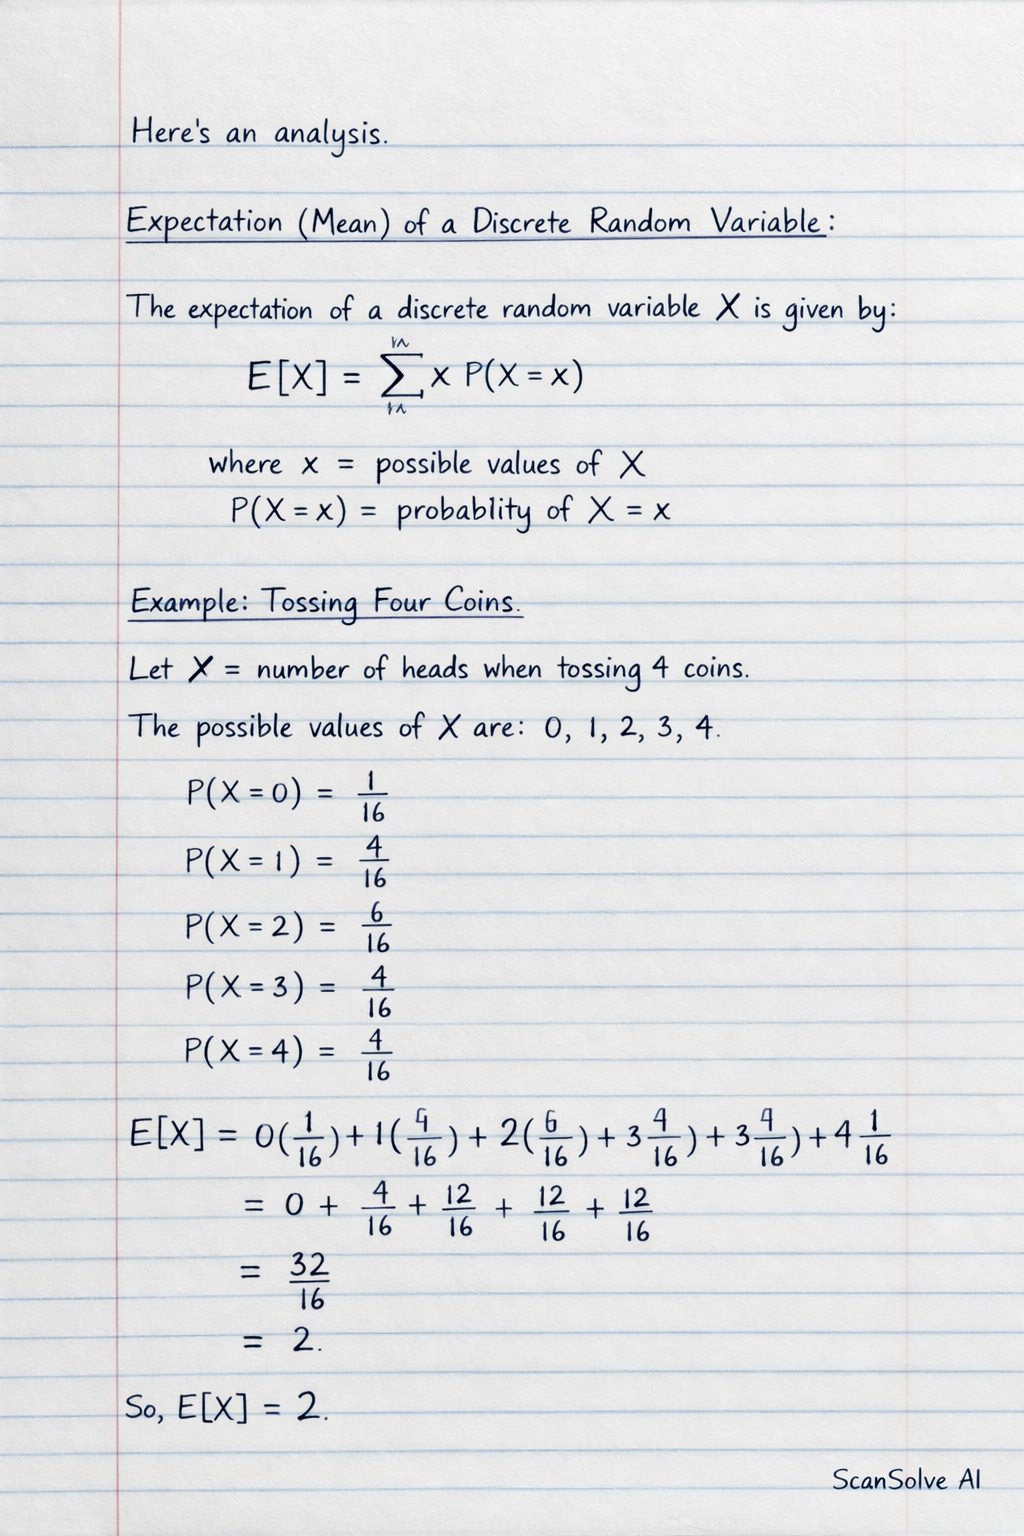 Here's an analysis.
Expectation (Mean) of a Discrete Random Variable:
The expectation of a discrete random variable X is given by:
E[X] = ∑ x P(X = x)
where x = possible values of X
P(X = x) = probablity of X = x
Example: Tossing Four Coins.
Let X = number of heads when tossing 4 coins.
The possible values of X are: 0, 1, 2, 3, 4.
P(X = 0) = 1/16
P(X = 1) = 4/16
P(X = 2) = 6/16
P(X = 3) = 4/16
P(X = 4) = 4/16
E[X] = 0(1/16) + 1(4/16) + 2(6/16) + 3 4/16) + 3 4/16) + 4 1/16
= 0 + 4/16 + 12/16 + 12/16 + 12/16
= 32/16
= 2.
So, E[X] = 2.
ScanSolve AI